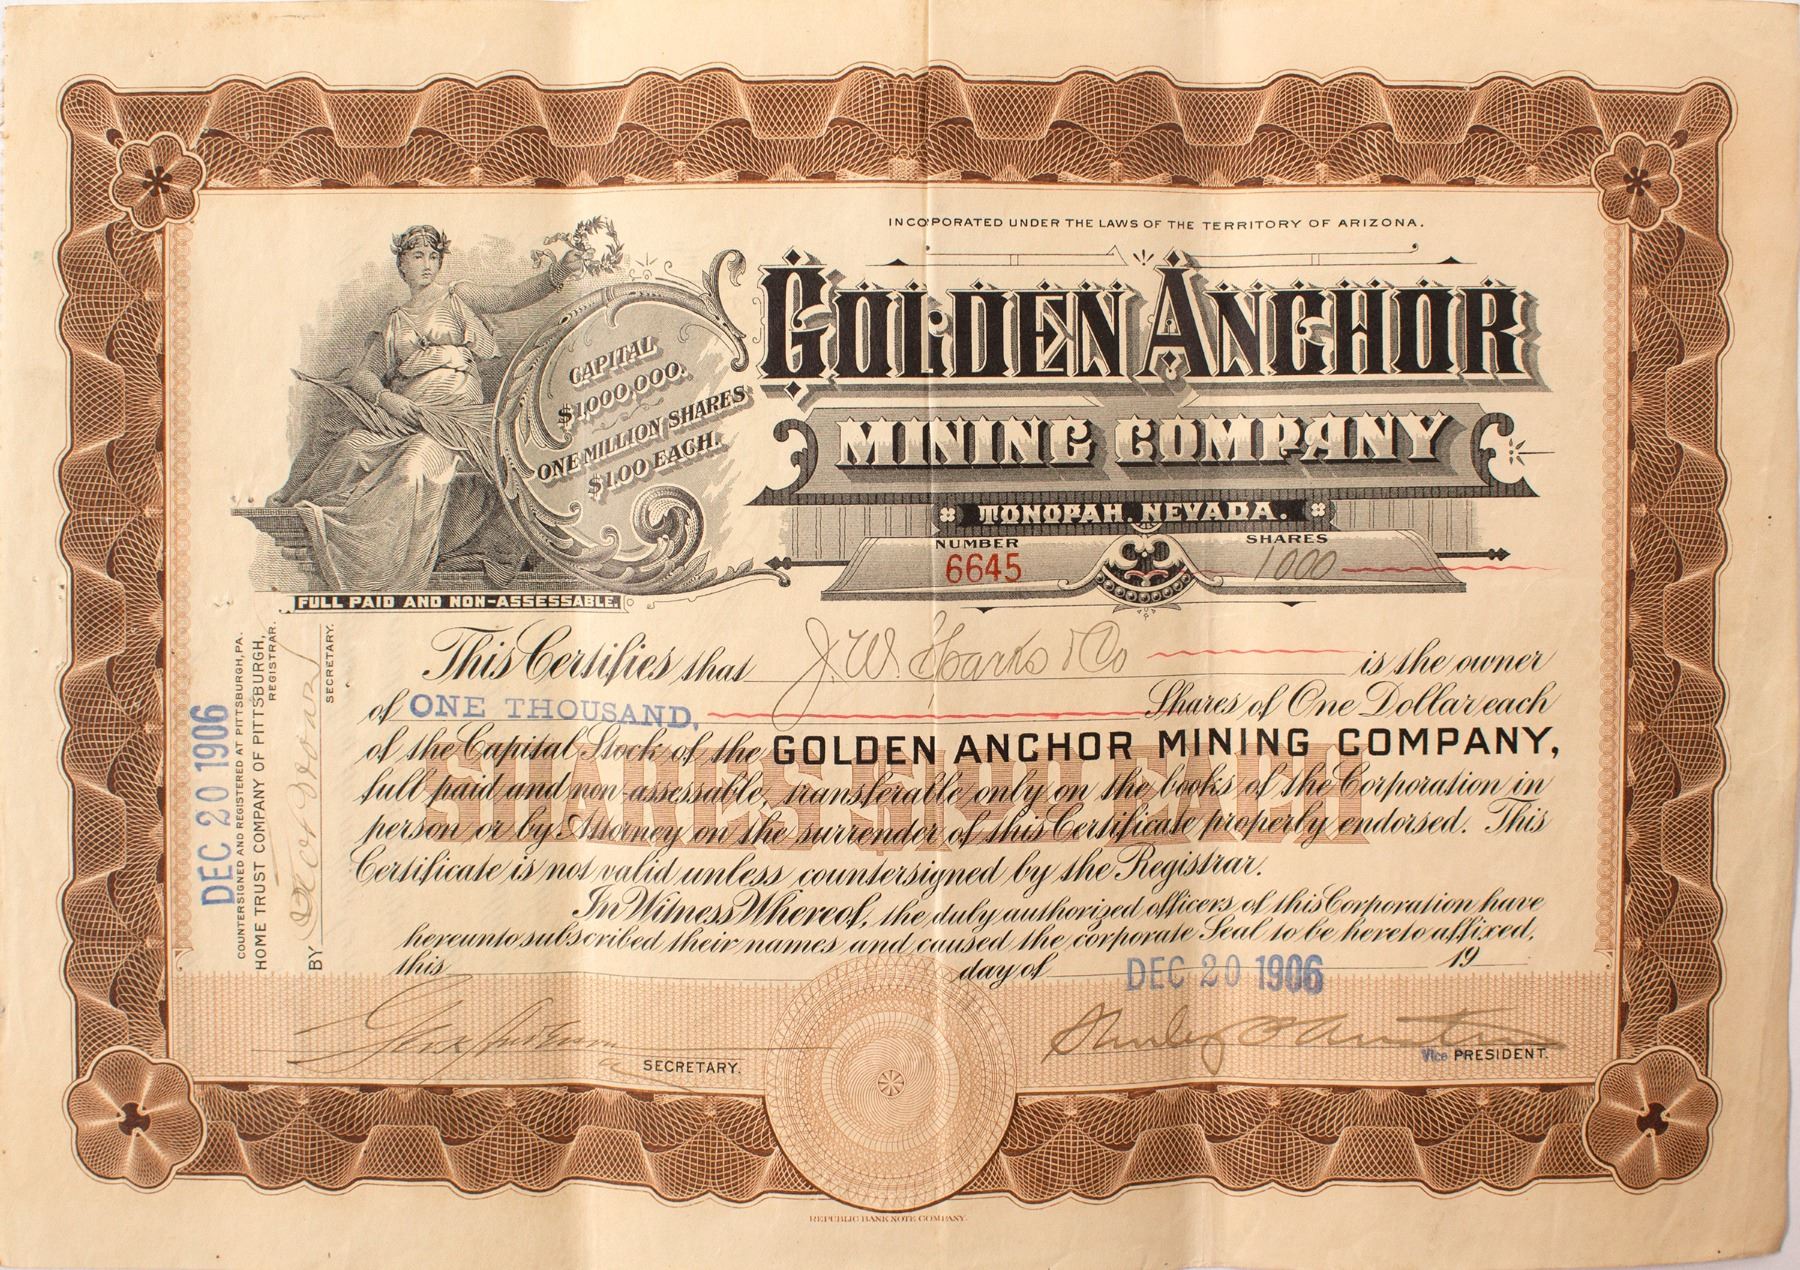 INCORPORATED UNDER THE LAWS OF THE TERRITORY OF ARIZONA.
GOLDEN ANCHOR
MINING COMPANY
TONOPAH, NEVADA.
CAPITAL
$1,000,000.
ONE MILLION SHARES
$1.00 EACH.
FULL PAID AND NON-ASSESSABLE.
NUMBER
6645
SHARES
1000
This Certifies that J. W. & Co is the owner
of ONE THOUSAND, Shares of One Dollar each
of the Capital Stock of the GOLDEN ANCHOR MINING COMPANY,
full paid and non-assessable, transferable only on the books of the Corporation in
person or by Attorney on the surrender of this Certificate properly endorsed. This
Certificate is not valid unless countersigned by the Registrar.
In Witness Whereof, the duly authorized officers of this Corporation have
hereunto subscribed their names and caused the corporate Seal to be hereto affixed,
this day of DEC 20 1906 19
SHARES $1.00 EACH
SECRETARY.
Vice PRESIDENT.
DEC 20 1906
COUNTERSIGNED AND REGISTERED AT PITTSBURGH, PA.
HOME TRUST COMPANY OF PITTSBURGH,
REGISTRAR.
BY
SECRETARY.
REPUBLIC BANK NOTE COMPANY.